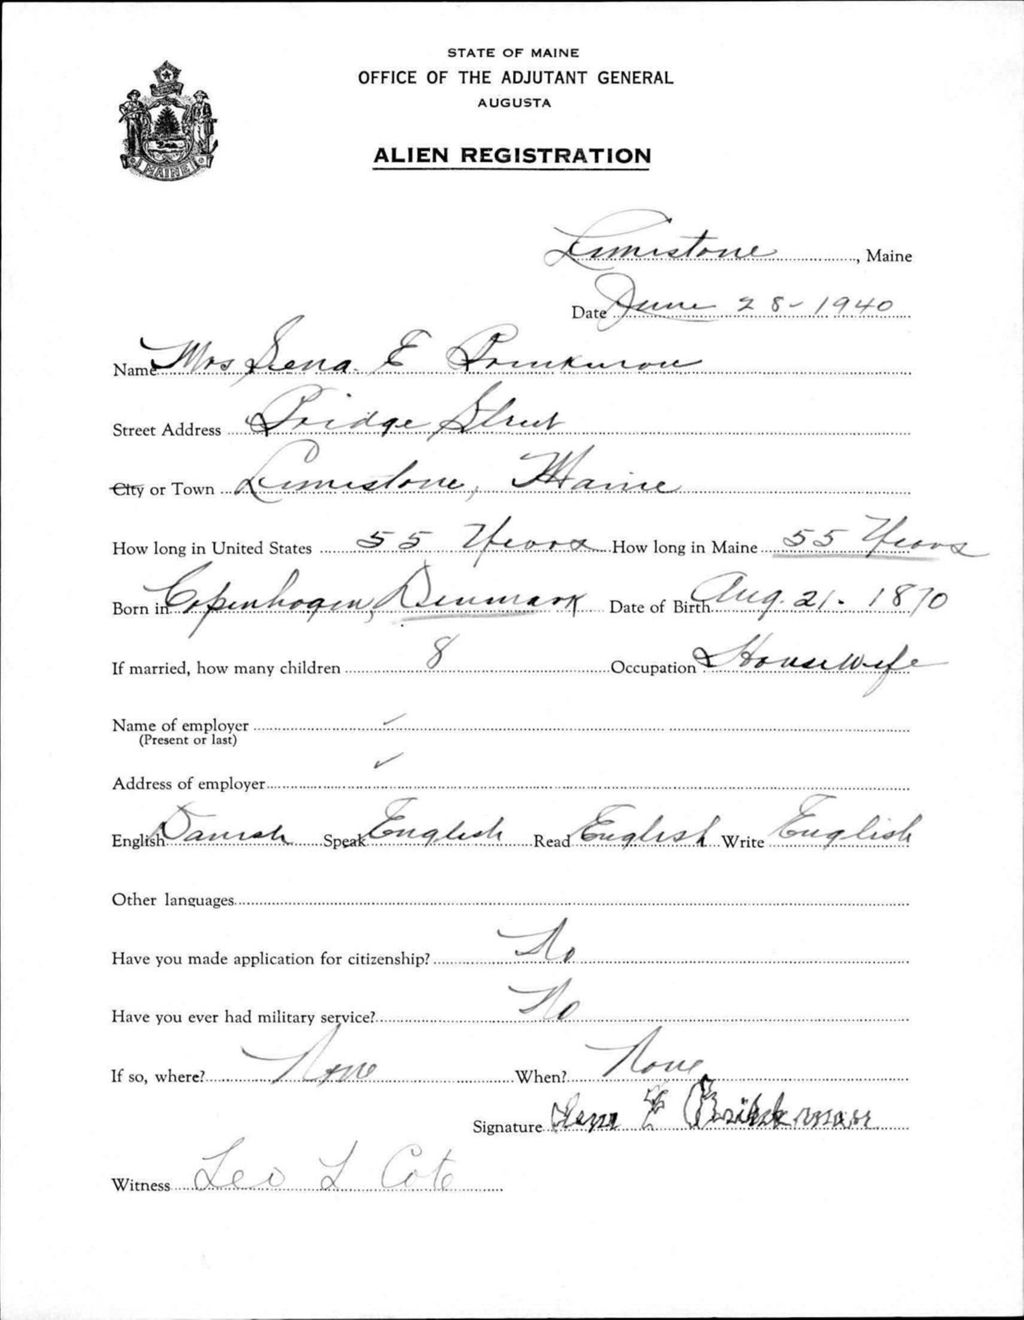 STATE OF MAINE
OFFICE OF THE ADJUTANT GENERAL
AUGUSTA
MAINE
ALIEN REGISTRATION
Limestone, Maine
Date June 28-1940
Name Mrs Lena. E
Street Address Bridge Street
City or Town Limestone, Maine
How long in United States 55 Years How long in Maine 55 Years
Born in Copenhagen, Denmark Date of Birth Aug. 21- 1870
If married, how many children 8 Occupation Housewife
Name of employer ✓
(Present or last)
Address of employer ✓
English Danish Speak English Read English Write English
Other languages
Have you made application for citizenship? No
Have you ever had military service? No
If so, where? None When? None
Signature Lena E
Witness Leo L Cote